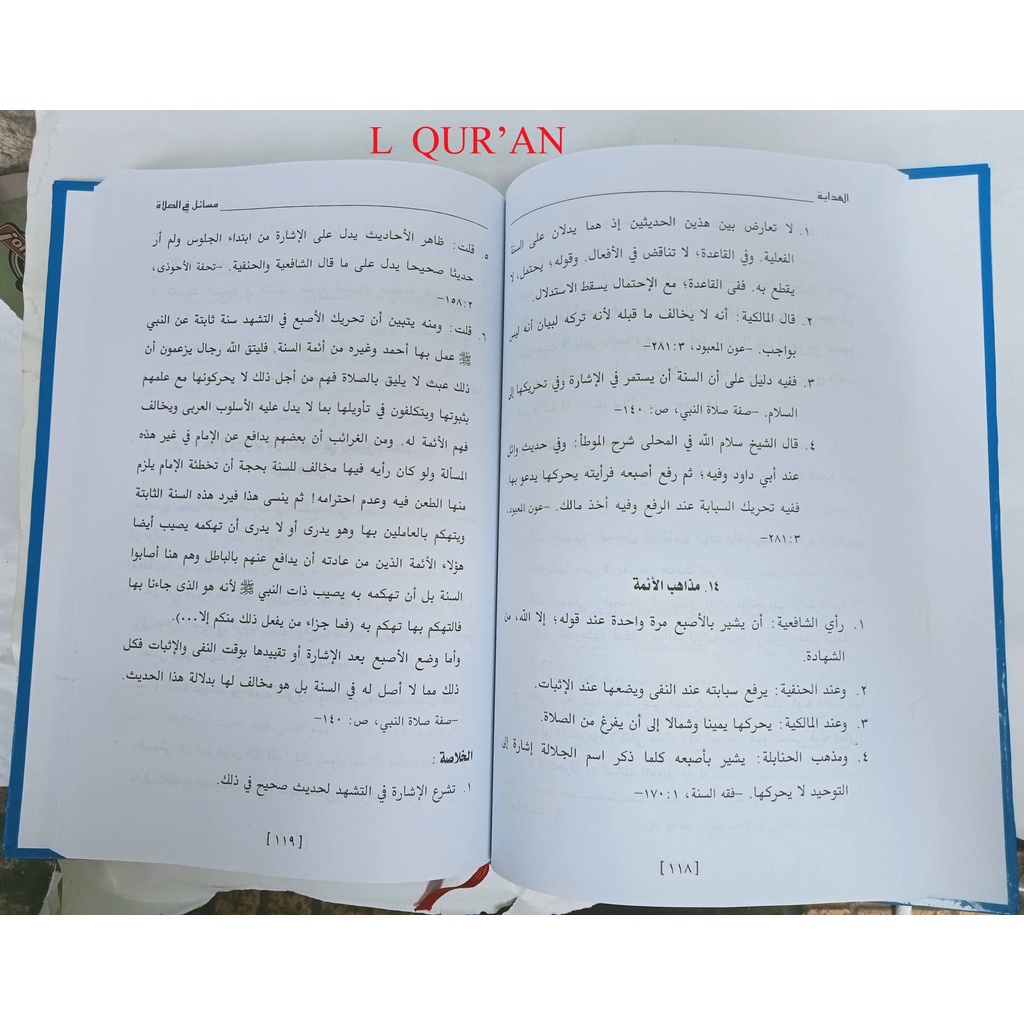 L QUR'AN
الهداية
١. لا تعارض بين هذين الحديثين إذ هما يدلان على السنة
الفعلية. وفي القاعدة؛ لا تناقض في الأفعال. وقوله؛ يحتمل، لا
يقطع به. ففى القاعدة؛ مع الإحتمال يسقط الاستدلال.
٢. قال المالكية: أنه لا يخالف ما قبله لأنه تركه لبيان أنه ليس
بواجب. -عون المعبود، ٢٨١:٣-
٣. ففيه دليل على أن السنة أن يستمر في الإشارة وفي تحريكها إلى
السلام. -صفة صلاة النبي، ص: ١٤٠-
٤. قال الشيخ سلام الله في المحلى شرح الموطأ: وفي حديث وائل
عند أبي داود وفيه؛ ثم رفع أصبعه فرأيته يحركها يدعو بها.
ففيه تحريك السبابة عند الرفع وفيه أخذ مالك. -عون المعبود،
٢٨١:٣-
١٤. مذاهب الأئمة
١. رأي الشافعية: أن يشير بالأصبع مرة واحدة عند قوله؛ إلا الله، من
الشهادة.
٢. وعند الحنفية: يرفع سبابته عند النفى ويضعها عند الإثبات.
٣. وعند المالكية: يحركها يمينا وشمالا إلى أن يفرغ من الصلاة.
٤. ومذهب الحنابلة: يشير بأصبعه كلما ذكر اسم الجلالة إشارة إلى
التوحيد لا يحركها. -فقه السنة، ١٧٠:١-
[١١٨]
مسائل في الصلاة
٥. قلت: ظاهر الأحاديث يدل على الإشارة من ابتداء الجلوس ولم أر
حديثا صحيحا يدل على ما قال الشافعية والحنفية. -تحفة الأحوذى،
١٥٨:٢-
٦. قلت: ومنه يتبين أن تحريك الأصبع في التشهد سنة ثابتة عن النبي
ﷺ عمل بها أحمد وغيره من أئمة السنة. فليتق الله رجال يزعمون أن
ذلك عبث لا يليق بالصلاة فهم من أجل ذلك لا يحركونها مع علمهم
بثبوتها ويتكلفون في تأويلها بما لا يدل عليه الأسلوب العربى ويخالف
فهم الأئمة له. ومن الغرائب أن بعضهم يدافع عن الإمام في غير هذه
المسألة ولو كان رأيه فيها مخالف للسنة بحجة أن تخطئة الإمام يلزم
منها الطعن فيه وعدم احترامه! ثم ينسى هذا فيرد هذه السنة الثابتة
ويتهكم بالعاملين بها وهو يدرى أو لا يدرى أن تهكمه يصيب أيضا
هؤلاء الأئمة الذين من عادته أن يدافع عنهم بالباطل وهم هنا أصابوا
السنة بل أن تهكمه به يصيب ذات النبي ﷺ لأنه هو الذى جاءنا بها
فالتهكم بها تهكم به (فما جزاء من يفعل ذلك منكم إلا...).
وأما وضع الأصبع بعد الإشارة أو تقييدها بوقت النفى والإثبات فكل
ذلك مما لا أصل له في السنة بل هو مخالف لها بدلالة هذا الحديث.
-صفة صلاة النبي، ص: ١٤٠-
الخلاصة :
١. تشرع الإشارة في التشهد لحديث صحيح في ذلك.
[١١٩]